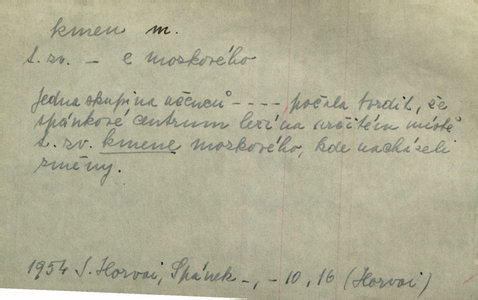 kmen m.
t. zv. – e mozkového
Jedna skupina učenců - - - - počala tvrdit, že
spánkové centrum leží na určitém místě
t. zv. kmene mozkového, kde nacházeli
změny.
1954 I. Horvai, Spánek -, - 10, 16 (Horvai)